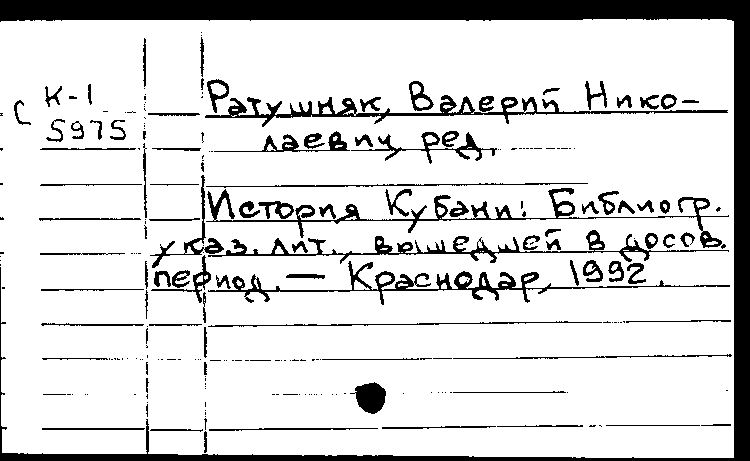 С К-1
5975
Ратушняк, Валерий Нико-
лаевич, ред.
История Кубани: Библиогр.
указ. лит., вышедшей в досов.
период. — Краснодар, 1992.